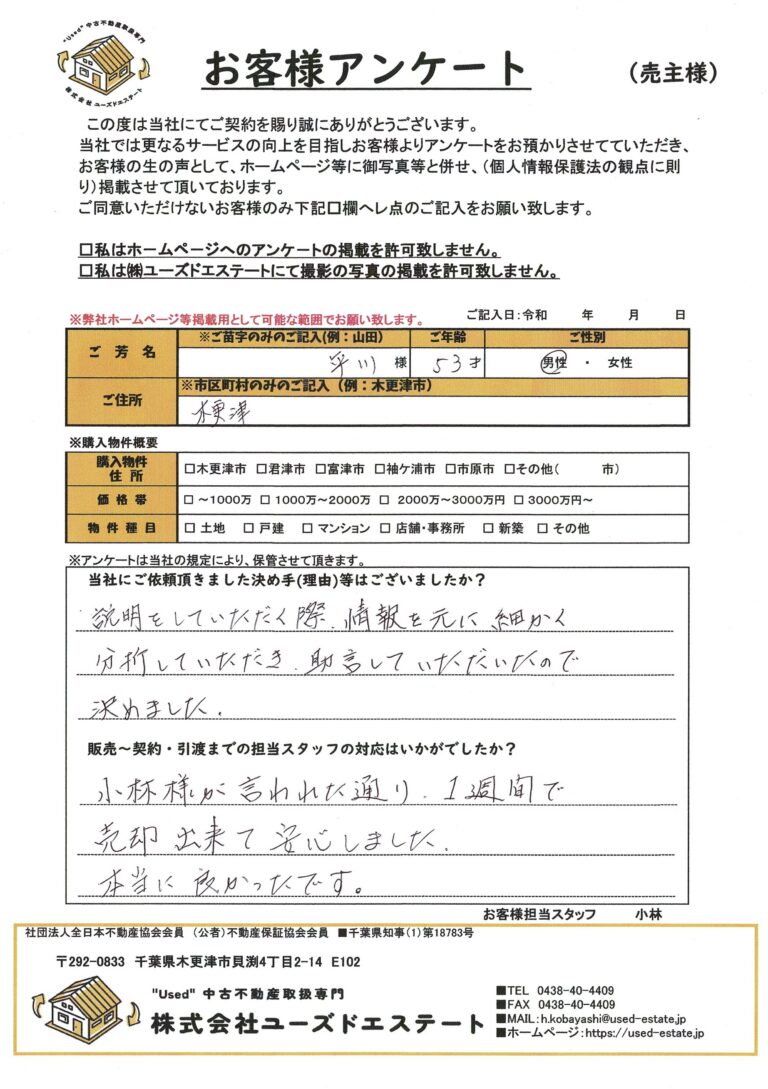 "Used" 中古不動産取扱専門
株式会社 ユーズドエステート
お客様アンケート
（売主様）
この度は当社にてご契約を賜り誠にありがとうございます。
当社では更なるサービスの向上を目指しお客様よりアンケートをお預かりさせてていただき、
お客様の生の声として、ホームページ等に御写真等と併せ、（個人情報保護法の観点に則
り）掲載させて頂いております。
ご同意いただけないお客様のみ下記口欄へレ点のご記入をお願い致します。
□私はホームページへのアンケートの掲載を許可致しません。
□私は㈱ユーズドエステートにて撮影の写真の掲載を許可致しません。
※弊社ホームページ等掲載用として可能な範囲でお願い致します。
ご記入日：令和　　年　　月　　日
ご芳名
※ご苗字のみのご記入(例：山田)
ご年齢
ご性別
平川 様
53才
男性 ・ 女性
ご住所
※市区町村のみのご記入（例：木更津市）
木更津
※購入物件概要
購入物件
住所
□木更津市 □君津市 □富津市 □袖ケ浦市 □市原市 □その他(　　市)
価格帯
□ ～1000万 □ 1000万～2000万 □ 2000万～3000万円 □ 3000万円～
物件種目
□ 土地 □ 戸建 □ マンション □ 店舗・事務所 □ 新築 □ その他
※アンケートは当社の規定により、保管させて頂きます。
当社にご依頼頂きました決め手(理由)等はございましたか？
説明をしていただく際、情報を元に細かく
分析していただき、助言していただいたので
決めました。
販売～契約・引渡までの担当スタッフの対応はいかがでしたか？
小林様が言われた通り、1週間で
売却出来て安心しました。
本当に良かったです。
お客様担当スタッフ　　小林
社団法人全日本不動産協会会員 （公者）不動産保証協会会員 ■千葉県知事(1)第18783号
〒292-0833 千葉県木更津市貝渕4丁目2-14 E102
"Used" 中古不動産取扱専門
株式会社ユーズドエステート
■TEL 0438-40-4409
■FAX 0438-40-4409
■MAIL：h.kobayashi@used-estate.jp
■ホームページ：https://used-estate.jp